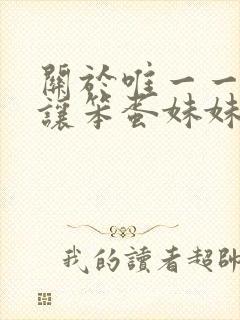 關於唯一一
讓笨蛋妹妹
我的讀者超帥